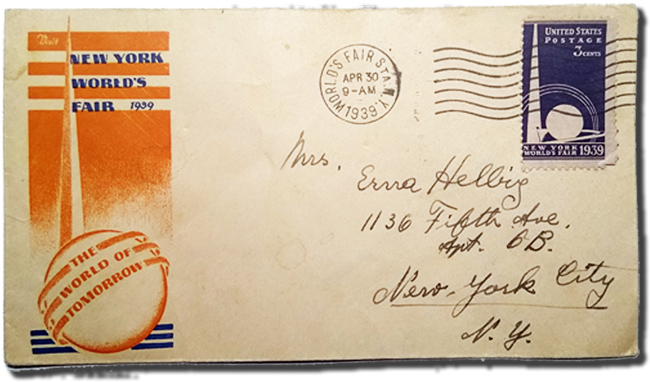 Visit
NEW YORK
WORLD'S
FAIR 1939
THE
WORLD OF
TOMORROW
WORLD'S FAIR STA. N.Y.
APR 30
9-AM
1939
UNITED STATES
POSTAGE
3 CENTS
NEW YORK
WORLD'S FAIR 1939
Mrs.
Erna Helbig
1136 Fifth Ave.
Apt. 6B.
New-York City
N.Y.